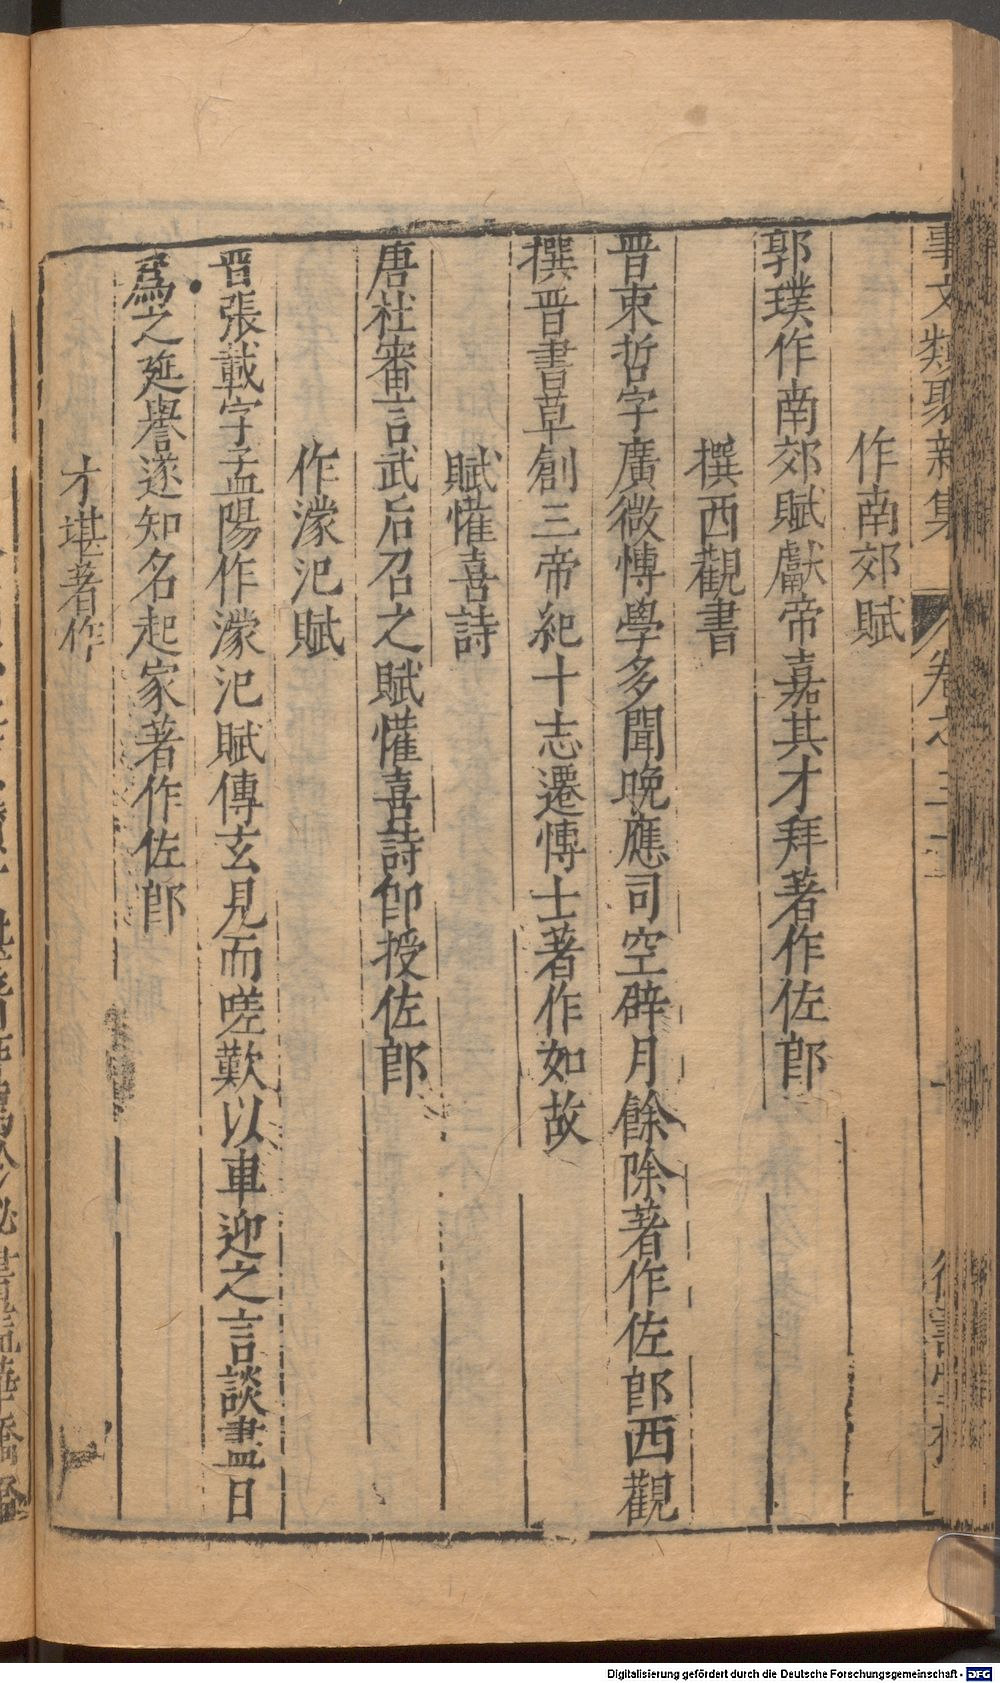 事文類聚新集 卷之三十二
作南郊賦
郭璞作南郊賦獻帝嘉其才拜著作佐郎
撰西觀書
晋束晳字廣微愽學多聞晚應司空辟月餘除著作佐郎西觀
撰晋書草創三帝紀十志遷愽士著作如故
賦懽喜詩
唐杜審言武后召之賦懽喜詩卽授佐郎
作濛汜賦
晋張載字孟陽作濛汜賦傳玄見而嗟歎以車迎之言談盡日
爲之延譽遂知名起家著作佐郎
才堪著作
Digitalisierung gefördert durch die Deutsche Forschungsgemeinschaft - DFG